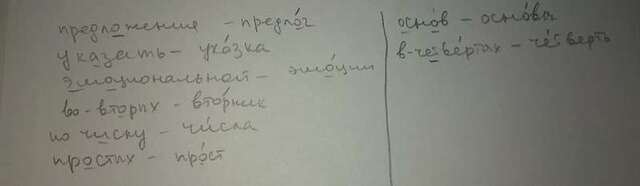 предложение – предло́г
указать – ука́зка
эмоциональной – эмо́ции
во-вторых – вто́рник
по числу – чи́сла
простых – про́ст
осно́в – осно́вы
в-четвёртых – че́тверть